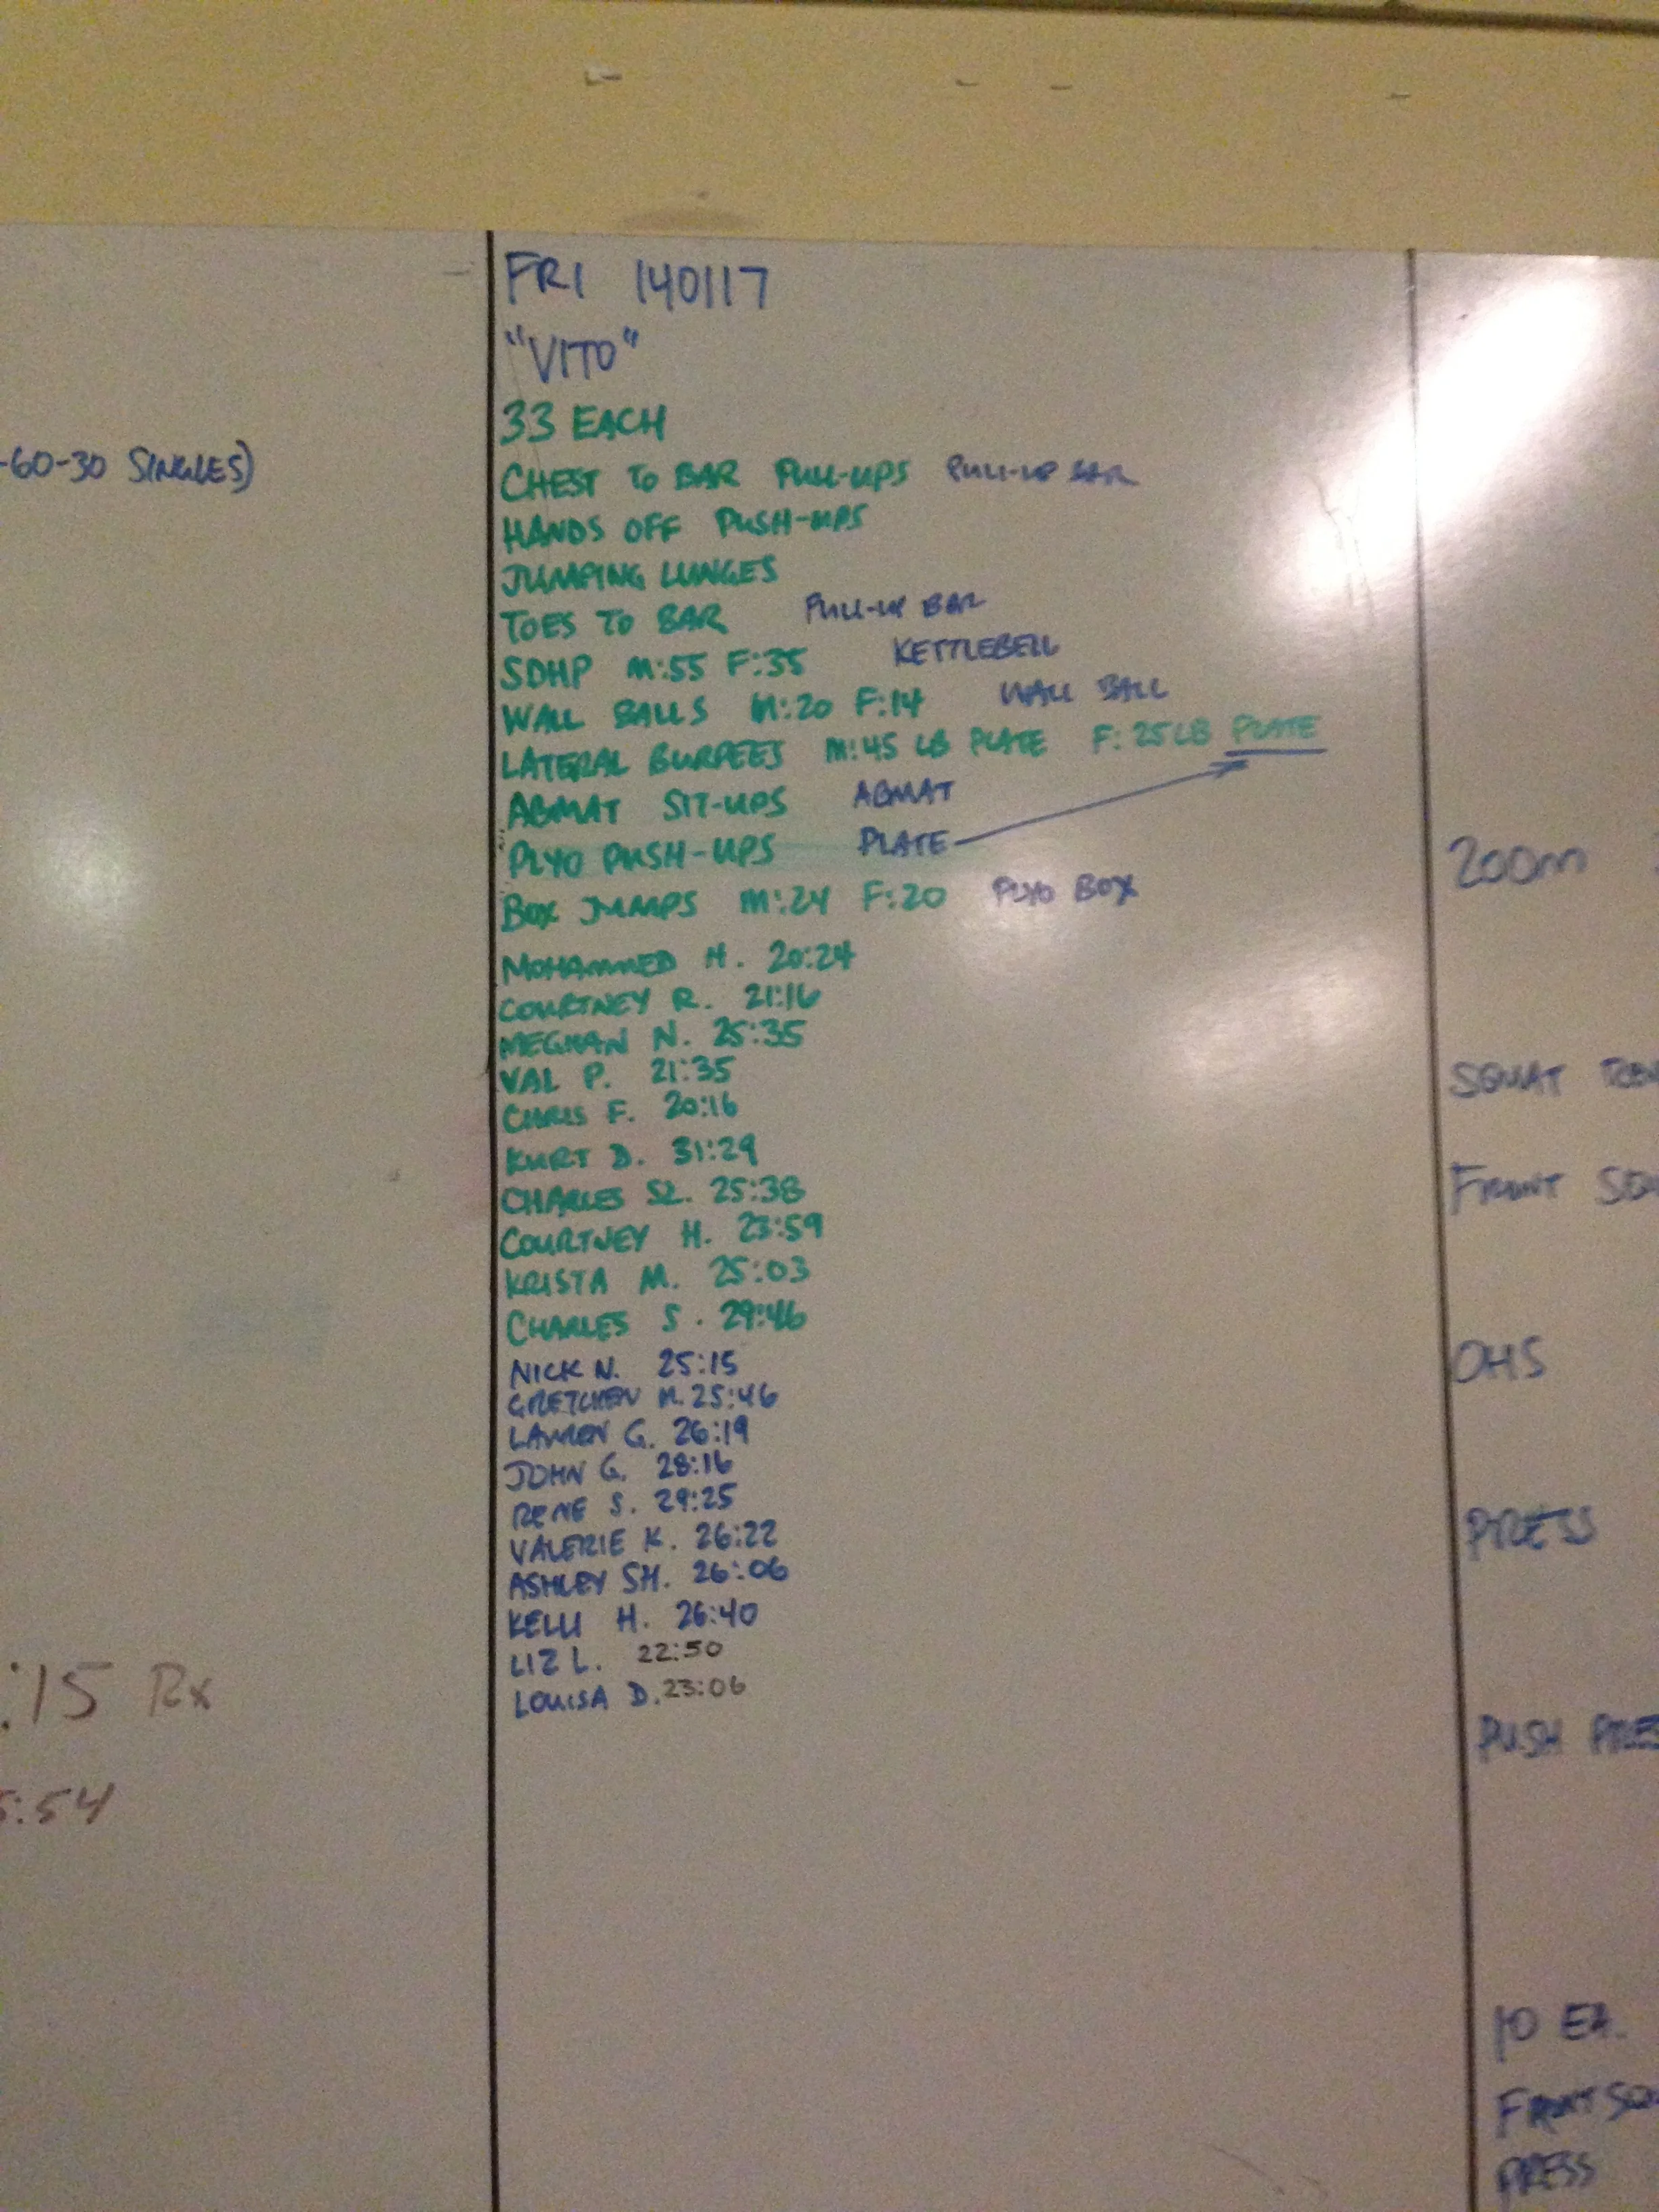 -60-30 SINGLES)
:15 Rx
5:54
FRI 140117
"VITO"
33 EACH
CHEST TO BAR PULL-UPS PULL-UP BAR
HANDS OFF PUSH-UPS
JUMPING LUNGES
TOES TO BAR PULL-UP BAR
SDHP M:55 F:35 KETTLEBELL
WALL BALLS M:20 F:14 WALL BALL
LATERAL BURPEES M:45 LB PLATE F:25 LB PLATE
ABMAT SIT-UPS ABMAT
PLYO PUSH-UPS PLATE
BOX JUMPS M:24 F:20 PLYO BOX
MOHAMMED H. 20:24
COURTNEY R. 21:16
MEGHAN N. 25:35
VAL P. 21:35
CHRIS F. 20:16
KURT D. 31:29
CHARLES SZ. 25:38
COURTNEY H. 23:59
KRISTA M. 25:03
CHARLES S. 29:46
NICK N. 25:15
GRETCHEN M. 25:46
LAUREN G. 26:19
JOHN G. 28:16
RENE S. 29:25
VALERIE K. 26:22
ASHLEY SH. 26:06
KELLI H. 26:40
LIZ L. 22:50
LOUISA D. 23:06
200m
SQUAT
FRONT
OHS
PRESS
PUSH PRES
10 EA.
FRONT
PRESS